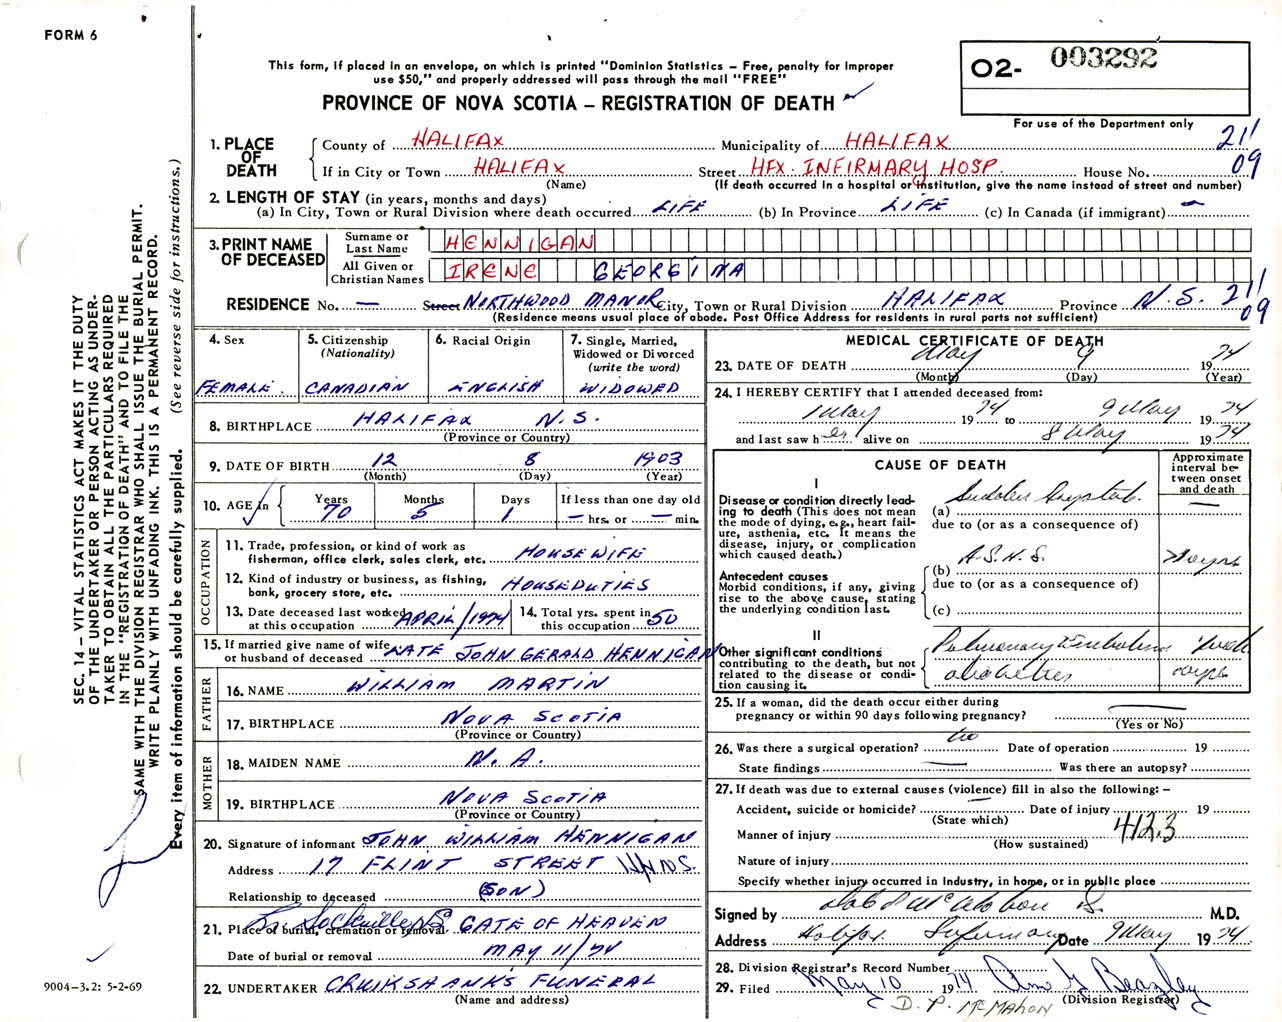 FORM 6
This form, if placed in an envelope, on which is printed "Dominion Statistics – Free, penalty for improper
use $50," and properly addressed will pass through the mail "FREE"
PROVINCE OF NOVA SCOTIA – REGISTRATION OF DEATH
O2- 003292
For use of the Department only
1. PLACE OF DEATH
County of HALIFAX Municipality of HALIFAX 21
If in City or Town HALIFAX Street HFX. INFIRMARY HOSP. House No. 09
(Name) (If death occurred in a hospital or institution, give the name instead of street and number)
2. LENGTH OF STAY (in years, months and days)
(a) In City, Town or Rural Division where death occurred LIFE (b) In Province LIFE (c) In Canada (if immigrant) —
3. PRINT NAME OF DECEASED
Surname or Last Name HENNIGAN
All Given or Christian Names IRENE GEORGINA
RESIDENCE No. — Street NORTHWOOD MANOR City, Town or Rural Division HALIFAX Province N.S. 21 09
(Residence means usual place of abode. Post Office Address for residents in rural parts not sufficient)
4. Sex
FEMALE.
5. Citizenship
(Nationality)
CANADIAN
6. Racial Origin
ENGLISH
7. Single, Married,
Widowed or Divorced
(write the word)
WIDOWED
8. BIRTHPLACE HALIFAX N.S.
(Province or Country)
9. DATE OF BIRTH 12 8 1903
(Month) (Day) (Year)
10. AGE in Years 70 Months 5 Days 1 If less than one day old — hrs. or — min.
OCCUPATION
11. Trade, profession, or kind of work as
fisherman, office clerk, sales clerk, etc. HOUSEWIFE
12. Kind of industry or business, as fishing,
bank, grocery store, etc. HOUSEDUTIES
13. Date deceased last worked
at this occupation APRIL/1974
14. Total yrs. spent in
this occupation 50
15. If married give name of wife
or husband of deceased LATE JOHN GERALD HENNIGAN
FATHER
16. NAME WILLIAM MARTIN
17. BIRTHPLACE NOVA SCOTIA
(Province or Country)
MOTHER
18. MAIDEN NAME N.A.
19. BIRTHPLACE NOVA SCOTIA
(Province or Country)
20. Signature of informant JOHN WILLIAM HENNIGAN
Address 17 FLINT STREET
Relationship to deceased (SON)
21. Place of burial, cremation or removal GATE OF HEAVEN
Date of burial or removal MAY 11/74
22. UNDERTAKER CRUIKSHANK'S FUNERAL
(Name and address)
MEDICAL CERTIFICATE OF DEATH
23. DATE OF DEATH May 9 1974
(Month) (Day) (Year)
24. I HEREBY CERTIFY that I attended deceased from:
1 May 1974 to 9 May 1974
and last saw her alive on 8 May 1974
CAUSE OF DEATH
Approximate
interval be-
tween onset
and death
I
Disease or condition directly lead-
ing to death (This does not mean
the mode of dying, e.g., heart fail-
ure, asthenia, etc. It means the
disease, injury, or complication
which caused death.)
(a) Sudden —
due to (or as a consequence of)
Antecedent causes
Morbid conditions, if any, giving
rise to the above cause, stating
the underlying condition last.
(b) A.S.H.S.
due to (or as a consequence of)
(c)
II
Other significant conditions
contributing to the death, but not
related to the disease or condi-
tion causing it.
Pulmonary Embolism 1 week
diabetes
25. If a woman, did the death occur either during
pregnancy or within 90 days following pregnancy? —
(Yes or No)
26. Was there a surgical operation? no Date of operation 19
State findings — Was there an autopsy?
27. If death was due to external causes (violence) fill in also the following: –
Accident, suicide or homicide? — Date of injury 19
(State which)
Manner of injury 412.3
(How sustained)
Nature of injury
Specify whether injury occurred in Industry, in home, or in public place
Signed by M.D.
Address Halifax Infirmary Date 9 May 1974
28. Division Registrar's Record Number
29. Filed May 10 1974 G Beazley
(Division Registrar)
D. P. McMAHON
SEC. 14 – VITAL STATISTICS ACT MAKES IT THE DUTY
OF THE UNDERTAKER OR PERSON ACTING AS UNDER-
TAKER TO OBTAIN ALL THE PARTICULARS REQUIRED
IN THE "REGISTRATION OF DEATH" AND TO FILE THE
SAME WITH THE DIVISION REGISTRAR WHO SHALL ISSUE THE BURIAL PERMIT.
WRITE PLAINLY WITH UNFADING INK. THIS IS A PERMANENT RECORD.
Every item of information should be carefully supplied. (See reverse side for instructions.)
9004–3.2: 5-2-69